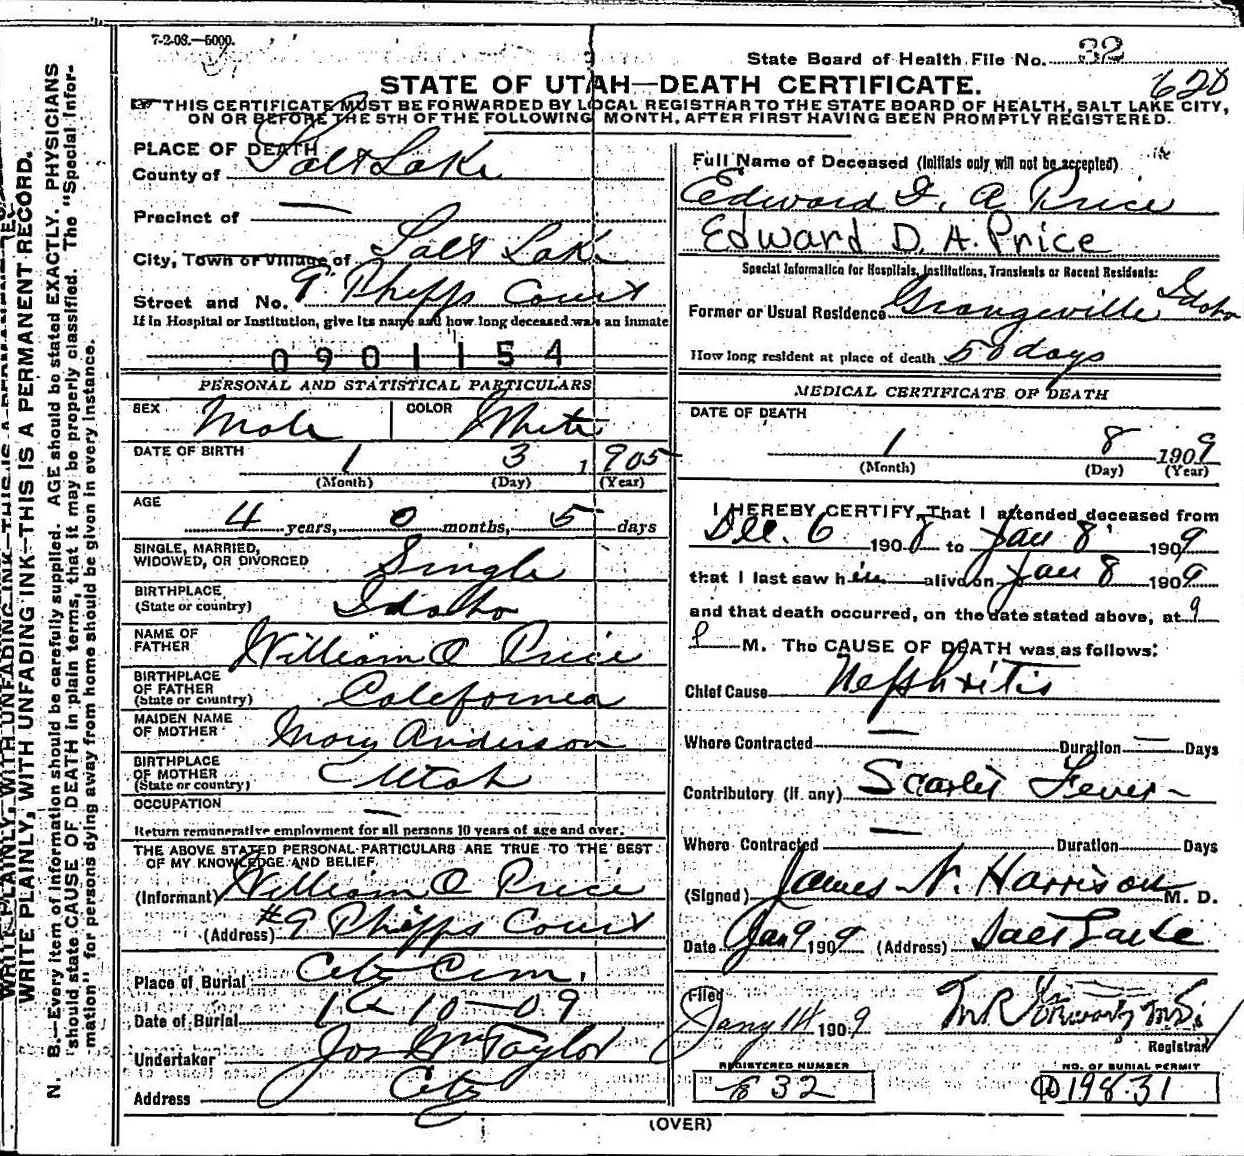 7-2-08.—5000.
State Board of Health File No. 32
STATE OF UTAH—DEATH CERTIFICATE.
620
THIS CERTIFICATE MUST BE FORWARDED BY LOCAL REGISTRAR TO THE STATE BOARD OF HEALTH, SALT LAKE CITY,
ON OR BEFORE THE 5TH OF THE FOLLOWING MONTH, AFTER FIRST HAVING BEEN PROMPTLY REGISTERED.
WRITE PLAINLY, WITH UNFADING INK—THIS IS A PERMANENT RECORD.
N. B.—Every item of information should be carefully supplied. AGE should be stated EXACTLY. PHYSICIANS
should state CAUSE OF DEATH in plain terms, that it may be properly classified. The "Special Infor-
mation" for persons dying away from home should be given in every instance.
PLACE OF DEATH
County of Salt Lake
Precinct of —
City, Town or Village of Salt Lake
Street and No. 9 Phipps Court
If in Hospital or Institution, give its name and how long deceased was an inmate
0901154
PERSONAL AND STATISTICAL PARTICULARS
SEX Male COLOR White
DATE OF BIRTH 1 3 1905
(Month) (Day) (Year)
AGE
4 years, 0 months, 5 days
SINGLE, MARRIED,
WIDOWED, OR DIVORCED Single
BIRTHPLACE
(State or country) Idaho
NAME OF
FATHER William O Price
BIRTHPLACE
OF FATHER
(State or country) California
MAIDEN NAME
OF MOTHER Mary Anderson
BIRTHPLACE
OF MOTHER
(State or country) Utah
OCCUPATION —
Return remunerative employment for all persons 10 years of age and over.
THE ABOVE STATED PERSONAL PARTICULARS ARE TRUE TO THE BEST
OF MY KNOWLEDGE AND BELIEF
(Informant) William O Price
(Address) #9 Phipps Court
Place of Burial City Cem.
Date of Burial 1-10-09
Undertaker Jos Wm Taylor
Address City
Full Name of Deceased (Initials only will not be accepted)
Edward D. A Price
Edward D. A. Price
Special Information for Hospitals, Institutions, Transients or Recent Residents:
Former or Usual Residence Grangeville Idaho
How long resident at place of death 50 days
MEDICAL CERTIFICATE OF DEATH
DATE OF DEATH
1 8 1909
(Month) (Day) (Year)
I HEREBY CERTIFY, That I attended deceased from
Dec. 6 1908 to Jan 8 1909
that I last saw him alive on Jan 8 1909
and that death occurred, on the date stated above, at 9
P M. The CAUSE OF DEATH was as follows:
Chief Cause Nephritis
Where Contracted — Duration — Days
Contributory (if any) Scarlet Fever
Where Contracted — Duration Days
(Signed) James N. Harrison M. D.
Date Jan 9 1909 (Address) Salt Lake
Filed
Jany 14 1909
Registrar
REGISTERED NUMBER
32
NO. OF BURIAL PERMIT
19831
(OVER)